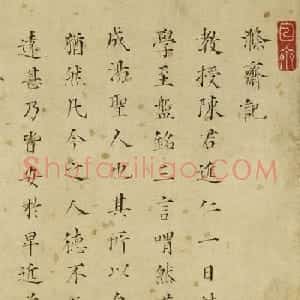 滌齋記
教授陳君近仁一日
學至盤銘之言喟然
成湯聖人也其所以
猶然凡今之人德不
遠甚乃皆安於卑近
Shufaziliao.com